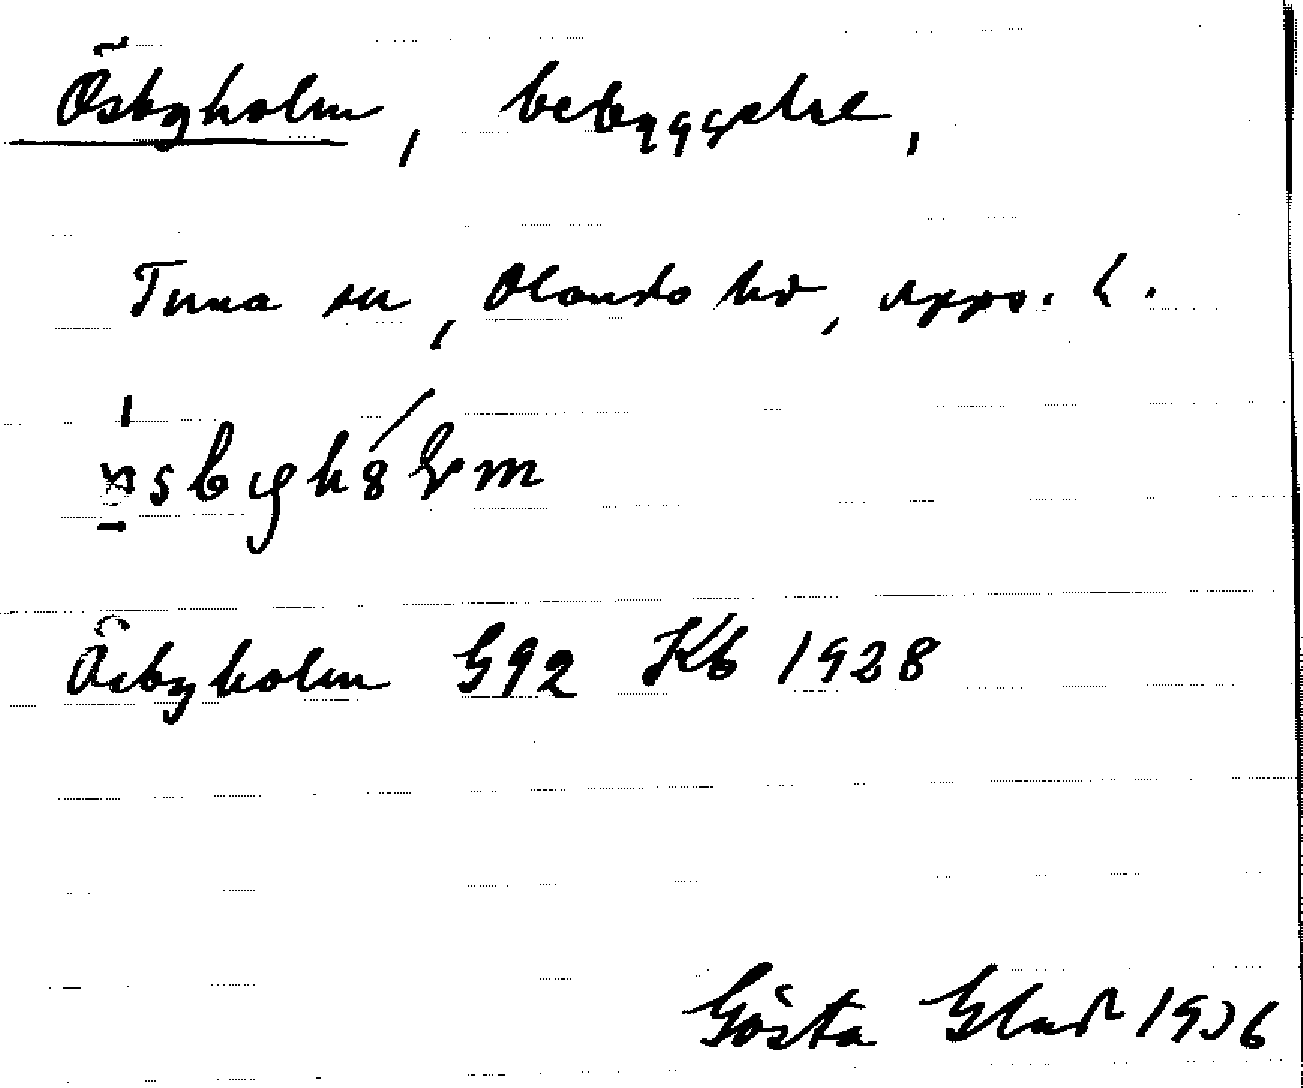 Ösbyholm, bebyggelse,
Tuna sn, Olands hd, Upps. l.
Ösbyholm G92 Kb 1928
Gösta Glad 1936